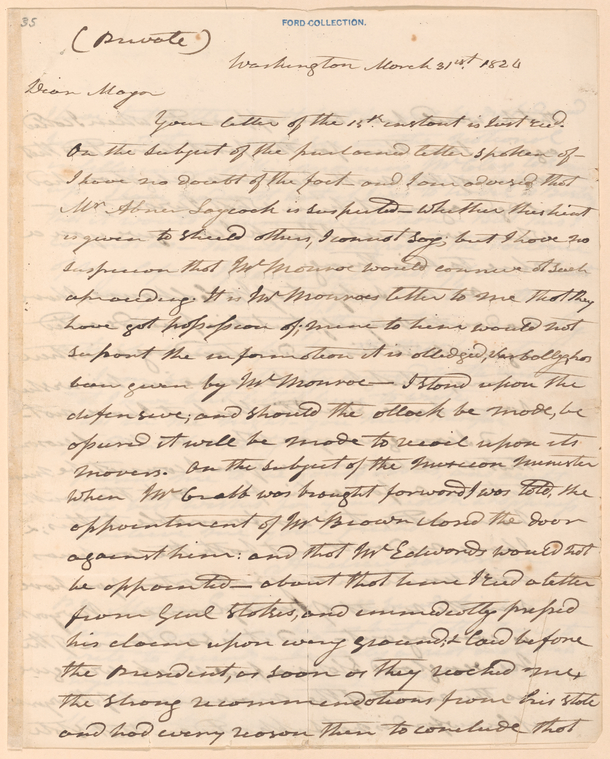 35
FORD COLLECTION.
(Private)
Washington March 31st. 1824
Dear Major
Your letter of the 15th. instant is Just recd.
On the subject of the purloined letter spoken of—
I have no doubt of the fact— and I am advised that
Mr Abner Laycock is suspected— whether the hint
is given to shield others, I cannot say; but I have no
suspicion that Mr Monroe would connive at such
a proceeding. It is Mr Monroes letter to me that they
have got possession of; mine to him would not
suport the information it is alledged, has
been given by Mr Monroe— I stand upon the
defensive; and should the attack be made, be
assured it will be made to recoil upon its
movers. On the subject of the Mexican minister
when Mr Crabb was brought forward I was told, the
appointment of Mr Brown closed the door
against him: and that Mr Edwards would not
be appointed— about that time I recd a letter
from Genl Stokes, and immediatly pressed
his claim upon every ground, & laid before
the President, as soon as they reached me,
the strong recommendations from his state
and had every reason then to conclude that